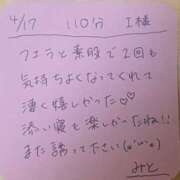 4/17 110分 I様
フェラと素股で2回も
気持ちよくなってくれて
凄く嬉しかった♡♡
添い寝も楽しかったね!!
また誘って下さい(๑'ω'๑)
みと